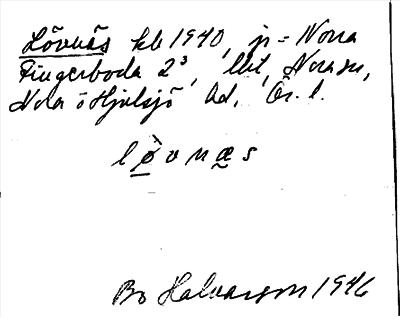 Lövnäs hb 1940, jr = Norra
Fingerboda 2³, lht, Nora sn,
Nora o Hjulsjö hd, Ör. l.
lövnæs
Bo Halvarson 1946